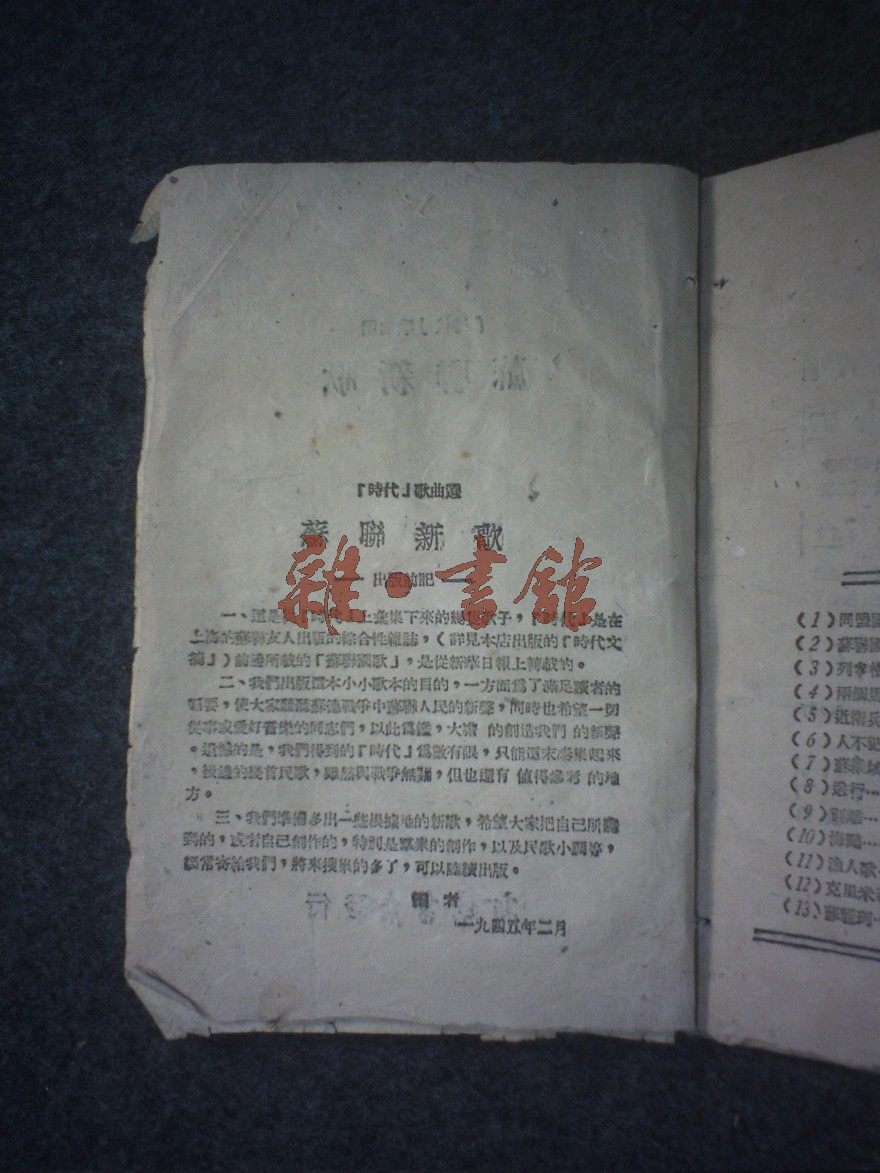 『時代』歌曲選
蘇聯新歌
出版前記
一、這是從『時代』上蒐集下來的幾個歌子,『時代』是在
上海的蘇聯友人出版的綜合性雜誌,(詳見本店出版的『時代文
摘』)前邊所載的『蘇聯國歌』,是從新華日報上轉載的。
二、我們出版這本小小歌本的目的,一方面為了滿足讀者的
需要,使大家聽聽蘇德戰爭中蘇聯人民的新聲,同時也希望一切
從事或愛好音樂的同志們,以此為鑑,大膽 的創造我們 的新聲
。遺憾的是,我們得到的『時代』為數有限,只能這末蒐集起來
,後邊的幾首民歌,雖然與戰爭無關,但也還有 值得參考 的地
方。
三、我們準備多出一些根據地的新歌,希望大家把自己所聽
到的,或者自己創作的,特別是羣眾的創作,以及民歌小調等,
經常寄給我們,將來搜集的多了,可以陸續出版。
編者
一九四五年二月
雜·書館
(1)同盟國
(2)蘇聯國
(3)列寧格
(4)兩個
(5)近衛兵
(6)人不犯
(7)蘇業
(8)送行…
(9)別離…
(10)海鷗…
(11)漁人歌
(12)克里米
(13)蘇麗珂